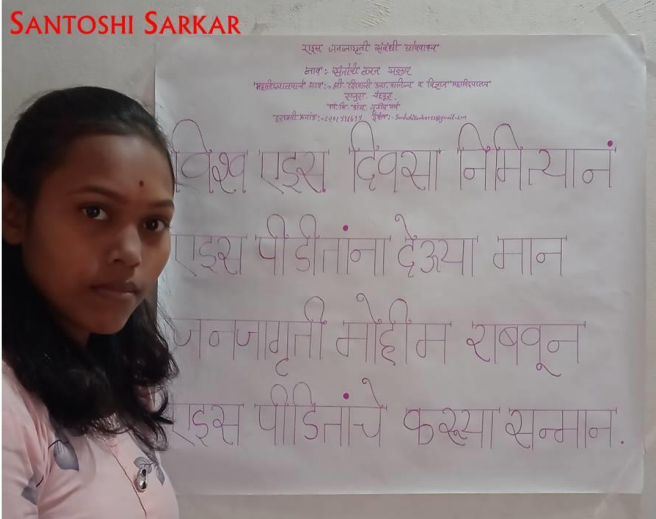 SANTOSHI SARKAR
एड्स जनजागृती संबंधी घोषवाक्य
नाव:- संतोषी सरकार
महाविद्यालयाचे नाव:- श्री शिवाजी कला वाणिज्य व विज्ञान महाविद्यालय
राजुरा
विश्व एड्स दिवसा निमित्यानं
एड्स पीडीतांना देऊया मान
जनजागृती मोहीम राबवून
एड्स पीडितांचे करूया सन्मान.